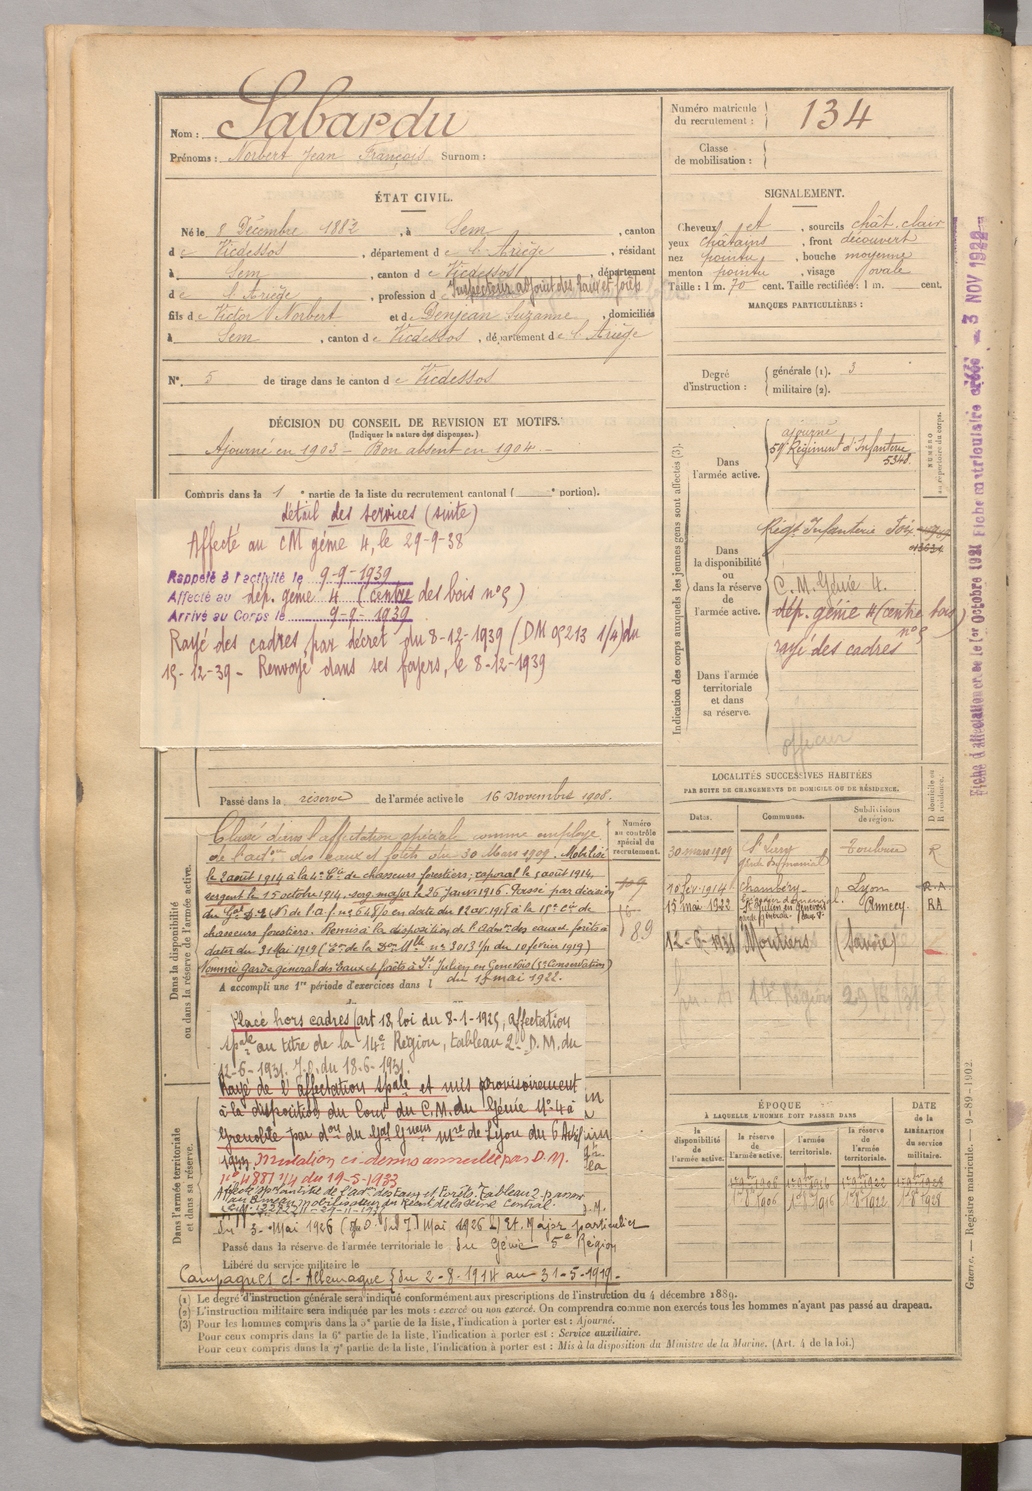 Nom : Sabardu
Prénoms : Norbert Jean François Surnom :
Numéro matricule du recrutement : 134
Classe de mobilisation :
ÉTAT CIVIL.
Né le 8 Décembre 1882, à Sem, canton
de Vicdessos, département de l'Ariège, résidant
à Sem, canton de Vicdessos, département
de l'Ariège, profession de Inspecteur adjoint des Eaux et forêts
fils de Victor Norbert et de Denjean Suzanne, domiciliés
à Sem, canton de Vicdessos, département de l'Ariège
N° 5 de tirage dans le canton de Vicdessos
SIGNALEMENT.
Cheveux et, sourcils chât. clair
yeux châtains, front découvert
nez pointu, bouche moyenne
menton pointu, visage ovale
Taille : 1 m. 70 cent. Taille rectifiée : 1 m. cent.
MARQUES PARTICULIÈRES :
Degré d'instruction : générale (1). 3
militaire (2).
DÉCISION DU CONSEIL DE REVISION ET MOTIFS.
(Indiquer la nature des dispenses.)
Ajourné en 1903 – Bon absent en 1904 –
Compris dans la 1 e partie de la liste du recrutement cantonal ( e portion).
détail des services (suite)
Affecté au CM génie 4, le 29-9-38
Rappelé à l'activité le 9-9-1939
Affecté au dép. génie 4 (centre des bois n°5)
Arrivé au Corps le 9-9-1939
Rayé des cadres par décret du 8-12-1939 (DM 05213 1/4) du
15-12-39 - Renvoyé dans ses foyers, le 8-12-1939
Indication des corps auxquels les jeunes gens sont affectés (3).
NUMÉRO au répertoire du corps.
Dans l'armée active.
ajourné
59e Régiment d'Infanterie
5348
Dans la disponibilité ou dans la réserve de l'armée active.
Régt Infanterie Foix
C.M. Génie 4.
dép. génie 4 (centre bois)
n°5
rayé des cadres
Dans l'armée territoriale et dans sa réserve.
officier
Passé dans la réserve de l'armée active le 16 novembre 1908.
Numéro au contrôle spécial du recrutement.
89
Dans la disponibilité ou dans la réserve de l'armée active.
Classé dans l'affectation spéciale comme employé
de l'adon des eaux et forêts du 30 Mars 1909. Mobilisé
le 2 août 1914 à la 4e Cie de chasseurs forestiers; caporal le 5 août 1914,
sergent le 15 octobre 1914, serg. major le 26 Janv. 1916. Passé par décision
chasseurs forestiers. Remis à la disposition de l'Adm. des eaux et forêts à
dater du 31 Mai 1919 (Cre de la Don Mlle n° 3013 3/11 du 10 février 1919)
Nommé garde général des Eaux et forêts à St Julien en Genevois (5e Conservation)
du 15 mai 1922.
A accompli une 1re période d'exercices dans l
Placé hors cadres (art 18, loi du 8-1-1925, affectation
spale au titre de la 14e Région, tableau 2. D.M. du
12-6-1931. J.O. du 18-6-1931.
Rayé de l'affectation spale et mis provisoirement
à la disposition du Com. du C.M. du Génie N° 4 à
Grenoble par don du Gal Gneur Mre de Lyon du 6 Avril
1933. Mutation ci-dessus annulée par D.M.
n° 4881 1/4 du 19-5-1933
du 3 Mai 1926 (J.O. du 7 Mai 1926) Et. Major particulier
Dans l'armée territoriale et dans sa réserve.
Passé dans la réserve de l'armée territoriale le du Génie 5e Région
Libéré du service militaire le
Campagnes ct. Allemagne { du 2-8-1914 au 31-5-1919.
LOCALITÉS SUCCESSIVES HABITÉES
PAR SUITE DE CHANGEMENTS DE DOMICILE OU DE RÉSIDENCE.
Dates. Communes. Subdivisions de région. D domicile ou R résidence.
30 mars 1909 Toulouse R
garde domanial
18 fév. 1914 Chambéry Lyon R.A.
15 mai 1922 St Julien en Genevois Annecy RA
12-6-1931 Moutiers (Savoie)
14e Région 29/6/31
ÉPOQUE
À LAQUELLE L'HOMME DOIT PASSER DANS
la disponibilité de l'armée active.
la réserve de l'armée active.
l'armée territoriale.
la réserve de l'armée territoriale.
DATE de la LIBÉRATION du service militaire.
1r 8bre 1906 1r 8bre 1916 1r 8bre 1922 1r 8bre 1928
(1) Le degré d'instruction générale sera indiqué conformément aux prescriptions de l'instruction du 4 décembre 1889.
(2) L'instruction militaire sera indiquée par les mots : exercé ou non exercé. On comprendra comme non exercés tous les hommes n'ayant pas passé au drapeau.
(3) Pour les hommes compris dans la 5e partie de la liste, l'indication à porter est : Ajourné.
Pour ceux compris dans la 6e partie de la liste, l'indication à porter est : Service auxiliaire.
Pour ceux compris dans la 7e partie de la liste, l'indication à porter est : Mis à la disposition du Ministre de la Marine. (Art. 4 de la loi.)
Guerre. — Registre matricule. — 9-89-1902.
Fiche d'affectation er. le 1er Octobre 1921 Fiche matriculaire créée — 3 NOV 1922